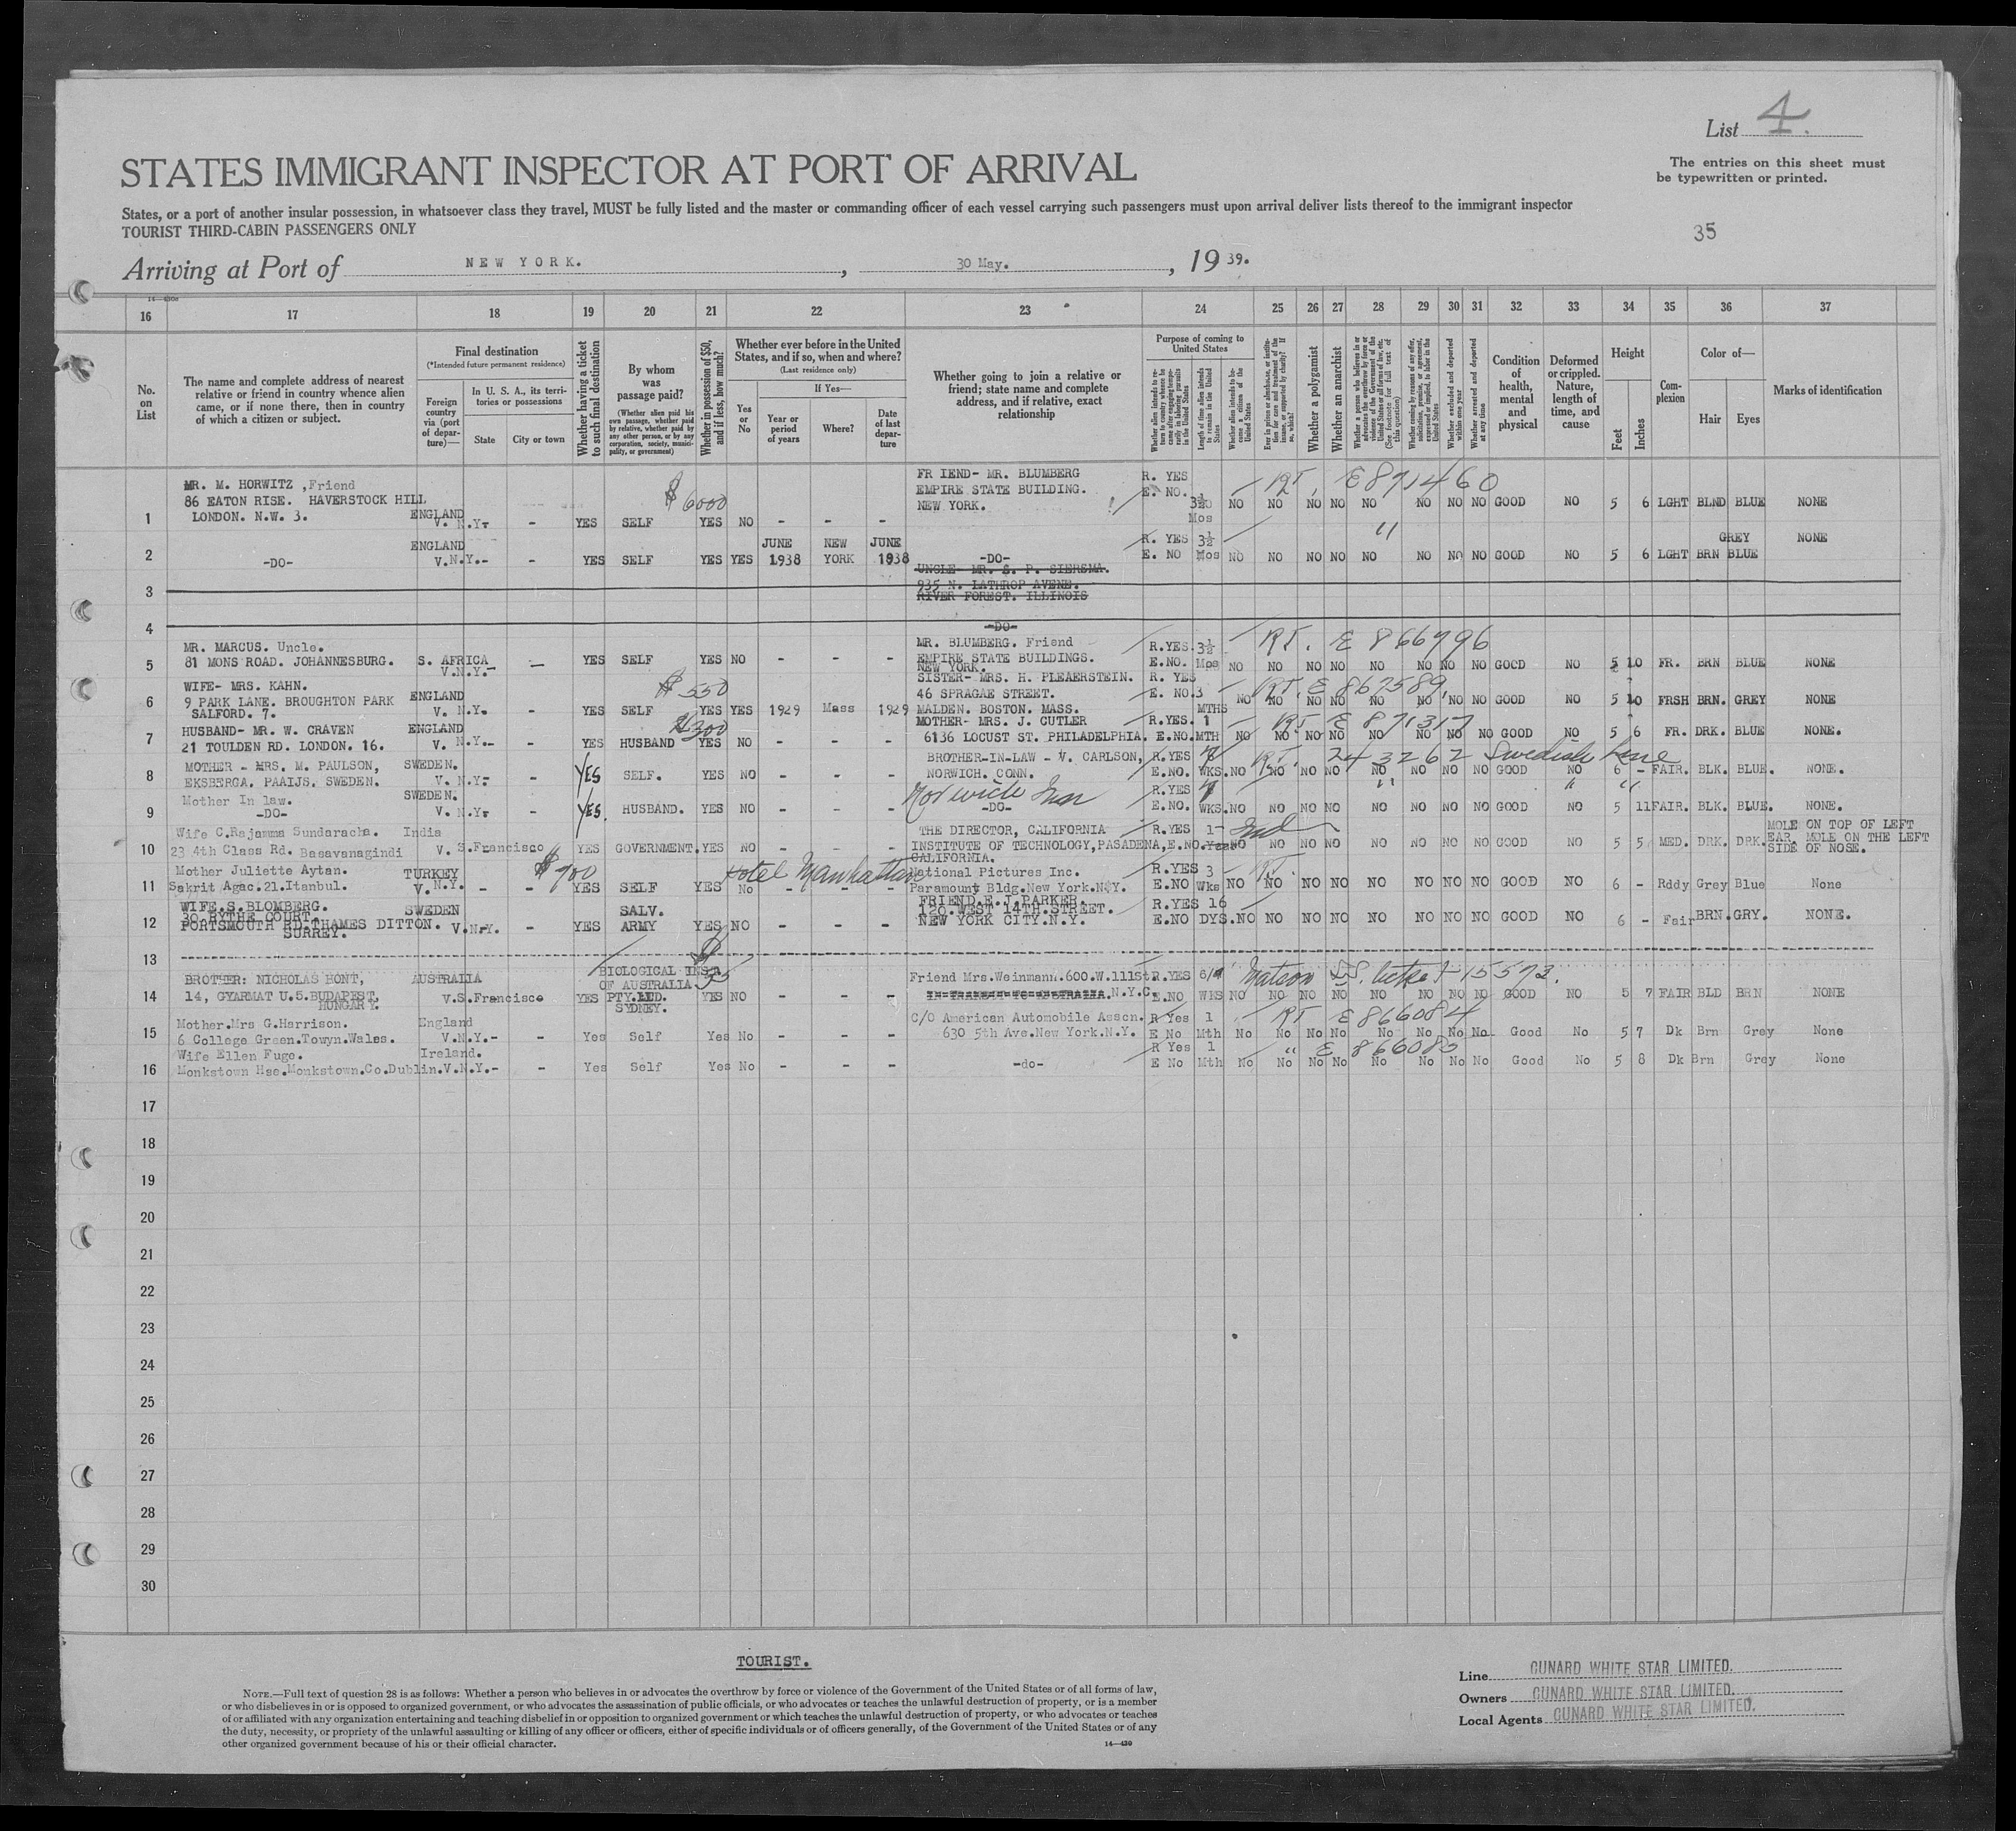 List 4.
STATES IMMIGRANT INSPECTOR AT PORT OF ARRIVAL
The entries on this sheet must
be typewritten or printed.
States, or a port of another insular possession, in whatsoever class they travel, MUST be fully listed and the master or commanding officer of each vessel carrying such passengers must upon arrival deliver lists thereof to the immigrant inspector
TOURIST THIRD-CABIN PASSENGERS ONLY
35
Arriving at Port of NEW YORK. , 30 May. , 19 39.
14-430a
16 17 18 19 20 21 22 23 24 25 26 27 28 29 30 31 32 33 34 35 36 37
No. on List
The name and complete address of nearest relative or friend in country whence alien came, or if none there, then in country of which a citizen or subject.
Final destination
(*Intended future permanent residence)
Foreign country via (port of departure)—
In U. S. A., its territories or possessions
State
City or town
Whether having a ticket to such final destination
By whom was passage paid?
(Whether alien paid his own passage, whether paid by relative, whether paid by any other person, or by any corporation, society, municipality, or government)
Whether in possession of $50, and if less, how much?
Whether ever before in the United States, and if so, when and where?
(Last residence only)
Yes or No
If Yes—
Year or period of years
Where?
Date of last departure
Whether going to join a relative or friend; state name and complete address, and if relative, exact relationship
Purpose of coming to United States
Whether alien intends to return to country whence he came after engaging temporarily in laboring pursuits in the United States
Length of time alien intends to remain in the United States
Whether alien intends to become a citizen of the United States
Ever in prison or almshouse, or institution for care and treatment of the insane, or supported by charity? If so, which?
Whether a polygamist
Whether an anarchist
Whether a person who believes in or advocates the overthrow by force or violence of the Government of the United States or all forms of law, etc. (See footnote for full text of this question)
Whether coming by reasons of any offer, solicitation, promise, or agreement, expressed or implied, to labor in the United States
Whether excluded and deported within one year
Whether arrested and deported at any time
Condition of health, mental and physical
Deformed or crippled. Nature, length of time, and cause
Height
Feet
Inches
Complexion
Color of—
Hair
Eyes
Marks of identification
MR. M. HORWITZ ,Friend $ 6000 FR IEND- MR. BLUMBERG R. YES RT. E 871460
86 EATON RISE. HAVERSTOCK HILL EMPIRE STATE BUILDING. E. NO.
1 LONDON. N.W. 3. ENGLAND V. N.Y. - YES SELF YES NO - - - NEW YORK. 3½ Mos NO NO NO NO NO NO NO NO GOOD NO 5 6 LGHT BLND BLUE NONE
ENGLAND JUNE NEW JUNE R. YES 3½ " GREY NONE
2 -DO- V.N.Y.- - YES SELF YES YES 1938 YORK 1938 -DO- E. NO Mos NO NO NO NO NO NO NO NO GOOD NO 5 6 LGHT BRN BLUE
UNCLE- MR. S. P. SIERSMA.
3 935 N. LATHROP AVENE.
RIVER FOREST. ILLINOIS
4 -DO-
MR. MARCUS. Uncle. MR. BLUMBERG. Friend R.YES. 3½ RT. E 866796
5 81 MONS ROAD. JOHANNESBURG. S. AFRICA V.N.Y.- - YES SELF YES NO - - - EMPIRE STATE BUILDINGS. E.NO. Mos NO NO NO NO NO NO NO NO GOOD NO 5 10 FR. BRN BLUE NONE
NEW YORK.
WIFE- MRS. KAHN. $ 550 SISTER- MRS. H. PLEAERSTEIN. R. YES RT. E 867589.
6 9 PARK LANE. BROUGHTON PARK ENGLAND 46 SPRAGAE STREET. E. NO.3
SALFORD. 7. V. N.Y. - YES SELF YES YES 1929 Mass 1929 MALDEN. BOSTON. MASS. MTHS NO NO NO NO NO NO NO NO GOOD NO 5 10 FRSH BRN. GREY NONE
HUSBAND- MR. W. CRAVEN ENGLAND $300 MOTHER- MRS. J. CUTLER R.YES. 1 RT E 871317
7 21 TOULDEN RD. LONDON. 16. V. N.Y.- - YES HUSBAND YES NO - - - 6136 LOCUST ST. PHILADELPHIA. E.NO.MTH NO NO NO NO NO NO NO NO GOOD NO 5 6 FR. DRK. BLUE NONE.
MOTHER - MRS. M. PAULSON, SWEDEN. BROTHER-IN-LAW - V. CARLSON, R.YES 7 RT. 243262 Swedish Line
8 EKSBERGA. PAAIJS. SWEDEN. V. N.Y. - YES SELF. YES NO - - - NORWICH. CONN. E.NO. WKS.NO NO NO NO NO NO NO NO GOOD NO 6 - FAIR. BLK. BLUE. NONE.
Mother In law. SWEDEN. Norwich Inn R.YES 7 " " "
9 -DO- V. N.Y. - YES. HUSBAND. YES NO - - - -DO- E.NO. WKS.NO NO NO NO NO NO NO NO GOOD NO 5 11 FAIR. BLK. BLUE. NONE.
Wife C.Rajamma Sundaracha. India THE DIRECTOR, CALIFORNIA R.YES 1- MOLE ON TOP OF LEFT
10 23 4th Class Rd. Basavanagindi V. S.Francisco YES GOVERNMENT.YES NO - - - INSTITUTE OF TECHNOLOGY,PASADENA,E.NO.Year NO NO NO NO NO NO NO NO GOOD NO 5 5 MED. DRK. DRK. EAR. MOLE ON THE LEFT
CALIFORNIA. SIDE OF NOSE.
Mother Juliette Aytan. TURKEY $900 Hotel Manhattan National Pictures Inc. R.YES 3 RT.
11 Sakrit Agac.21.Itanbul. V. N.Y. - - YES SELF YES No - - - Paramount Bldg.New York.N.Y. E.NO Wks NO NO NO NO NO NO NO NO GOOD NO 6 - Rddy Grey Blue None
WIFE.S.BLOMBERG. SWEDEN SALV. FRIEND.E.J.PARKER. R.YES 16
12 30 RYTHE COURT. 120.WEST 14TH.STREET.
PORTSMOUTH RD.THAMES DITTON. V.N.Y. - YES ARMY YES NO - - - NEW YORK CITY.N.Y. E.NO DYS.NO NO NO NO NO NO NO NO GOOD NO 6 - Fair BRN. GRY. NONE.
SURREY.
13
BROTHER: NICHOLAS HONT, AUSTRALIA BIOLOGICAL INST. $35 Friend Mrs.Weinmann.600.W.111St R.YES Matson S.S. ticket 15573.
OF AUSTRALIA
14 14, GYARMAT U.5.BUDAPEST, V.S.Francisco YES PTY.LTD. YES NO - - - IN TRANSIT TO AUSTRALIA.N.Y.C. E.NO WKS NO NO NO NO NO NO NO NO GOOD NO 5 7 FAIR BLD BRN NONE
HUNGARY. SYDNEY.
Mother.Mrs G.Harrison. England C/O American Automobile Asscn. R Yes 1 RT E 866084
15 6 College Green.Towyn.Wales. V.N.Y.- - Yes Self Yes No - - - 630 5th Ave.New York.N.Y. E No Mth No No No No No No No No Good No 5 7 Dk Brn Grey None
Wife Ellen Fuge. Ireland. R Yes 1 " E 866080
16 Monkstown Hse.Monkstown.Co.Dublin.V.N.Y.- - Yes Self Yes No - - - -do- E No Mth No No No No No No No No Good No 5 8 Dk Brn Grey None
17
18
19
20
21
22
23
24
25
26
27
28
29
30
TOURIST.
NOTE.—Full text of question 28 is as follows: Whether a person who believes in or advocates the overthrow by force or violence of the Government of the United States or of all forms of law,
or who disbelieves in or is opposed to organized government, or who advocates the assassination of public officials, or who advocates or teaches the unlawful destruction of property, or is a member
of or affiliated with any organization entertaining and teaching disbelief in or opposition to organized government or which teaches the unlawful destruction of property, or who advocates or teaches
the duty, necessity, or propriety of the unlawful assaulting or killing of any officer or officers, either of specific individuals or of officers generally, of the Government of the United States or of any
other organized government because of his or their official character.
14-430
Line CUNARD WHITE STAR LIMITED.
Owners CUNARD WHITE STAR LIMITED.
Local Agents CUNARD WHITE STAR LIMITED.